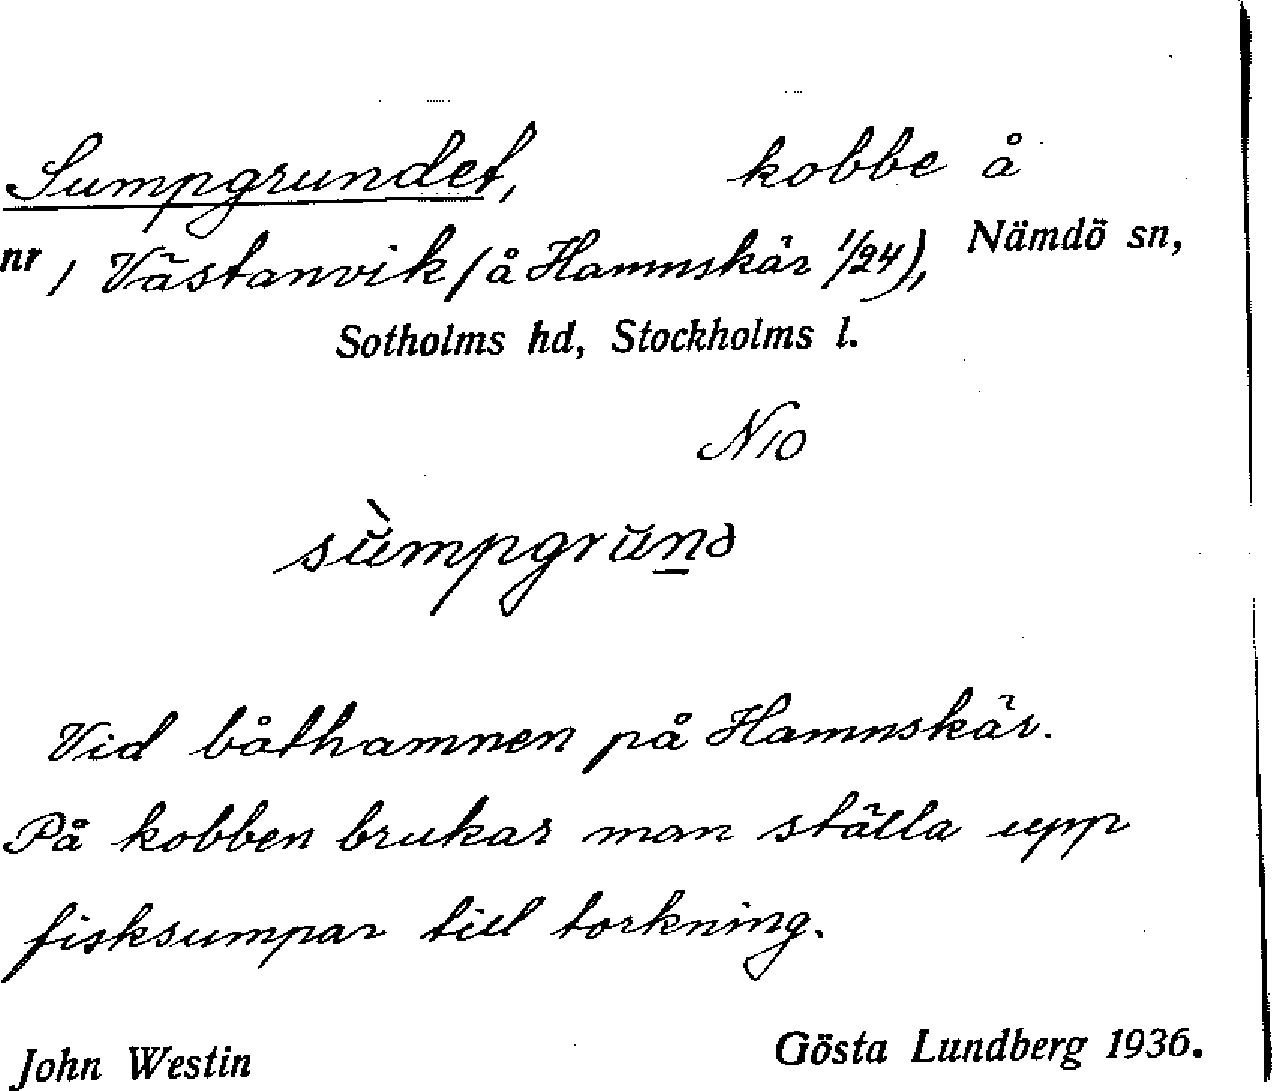 Sumpgrundet, kobbe å
nr 1 Västanvik (å Hamnskär 1/24), Nämdö sn,
Sotholms hd, Stockholms l.
N10
sùmpgrŭnd
Vid båthamnen på Hamnskär.
På kobben brukar man ställa upp
fisksumpar till torkning.
John Westin Gösta Lundberg 1936.